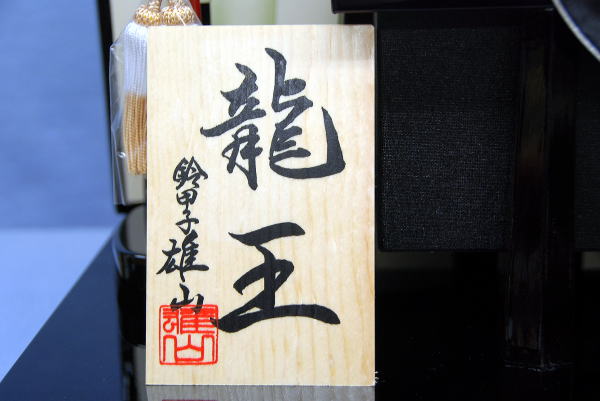 龍王
鈴甲子雄山
雄山